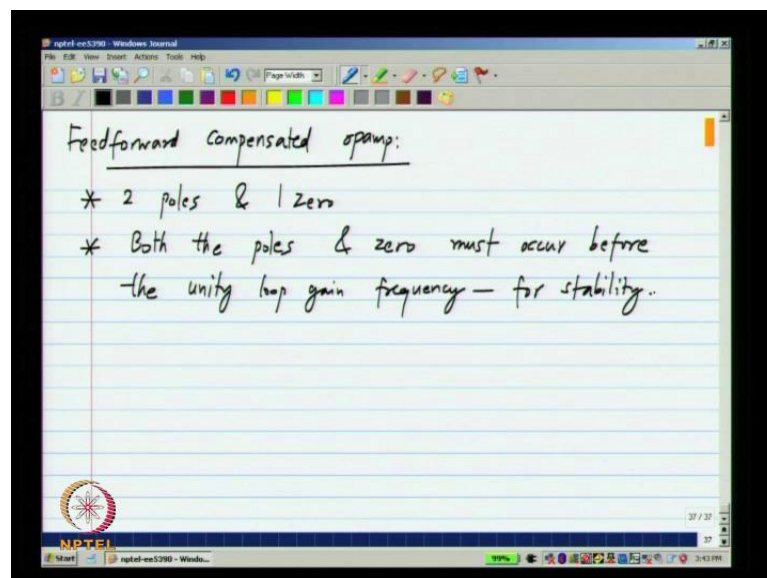 nptel-ee5390 - Windows Journal
File Edit View Insert Actions Tools Help
Page Width
B I
Feedforward compensated opamp:
* 2 poles & 1 zero
* Both the poles & zero must occur before
the unity loop gain frequency — for stability..
37 / 37
37
NPTEL
Start nptel-ee5390 - Windo... 99% 3:43 PM